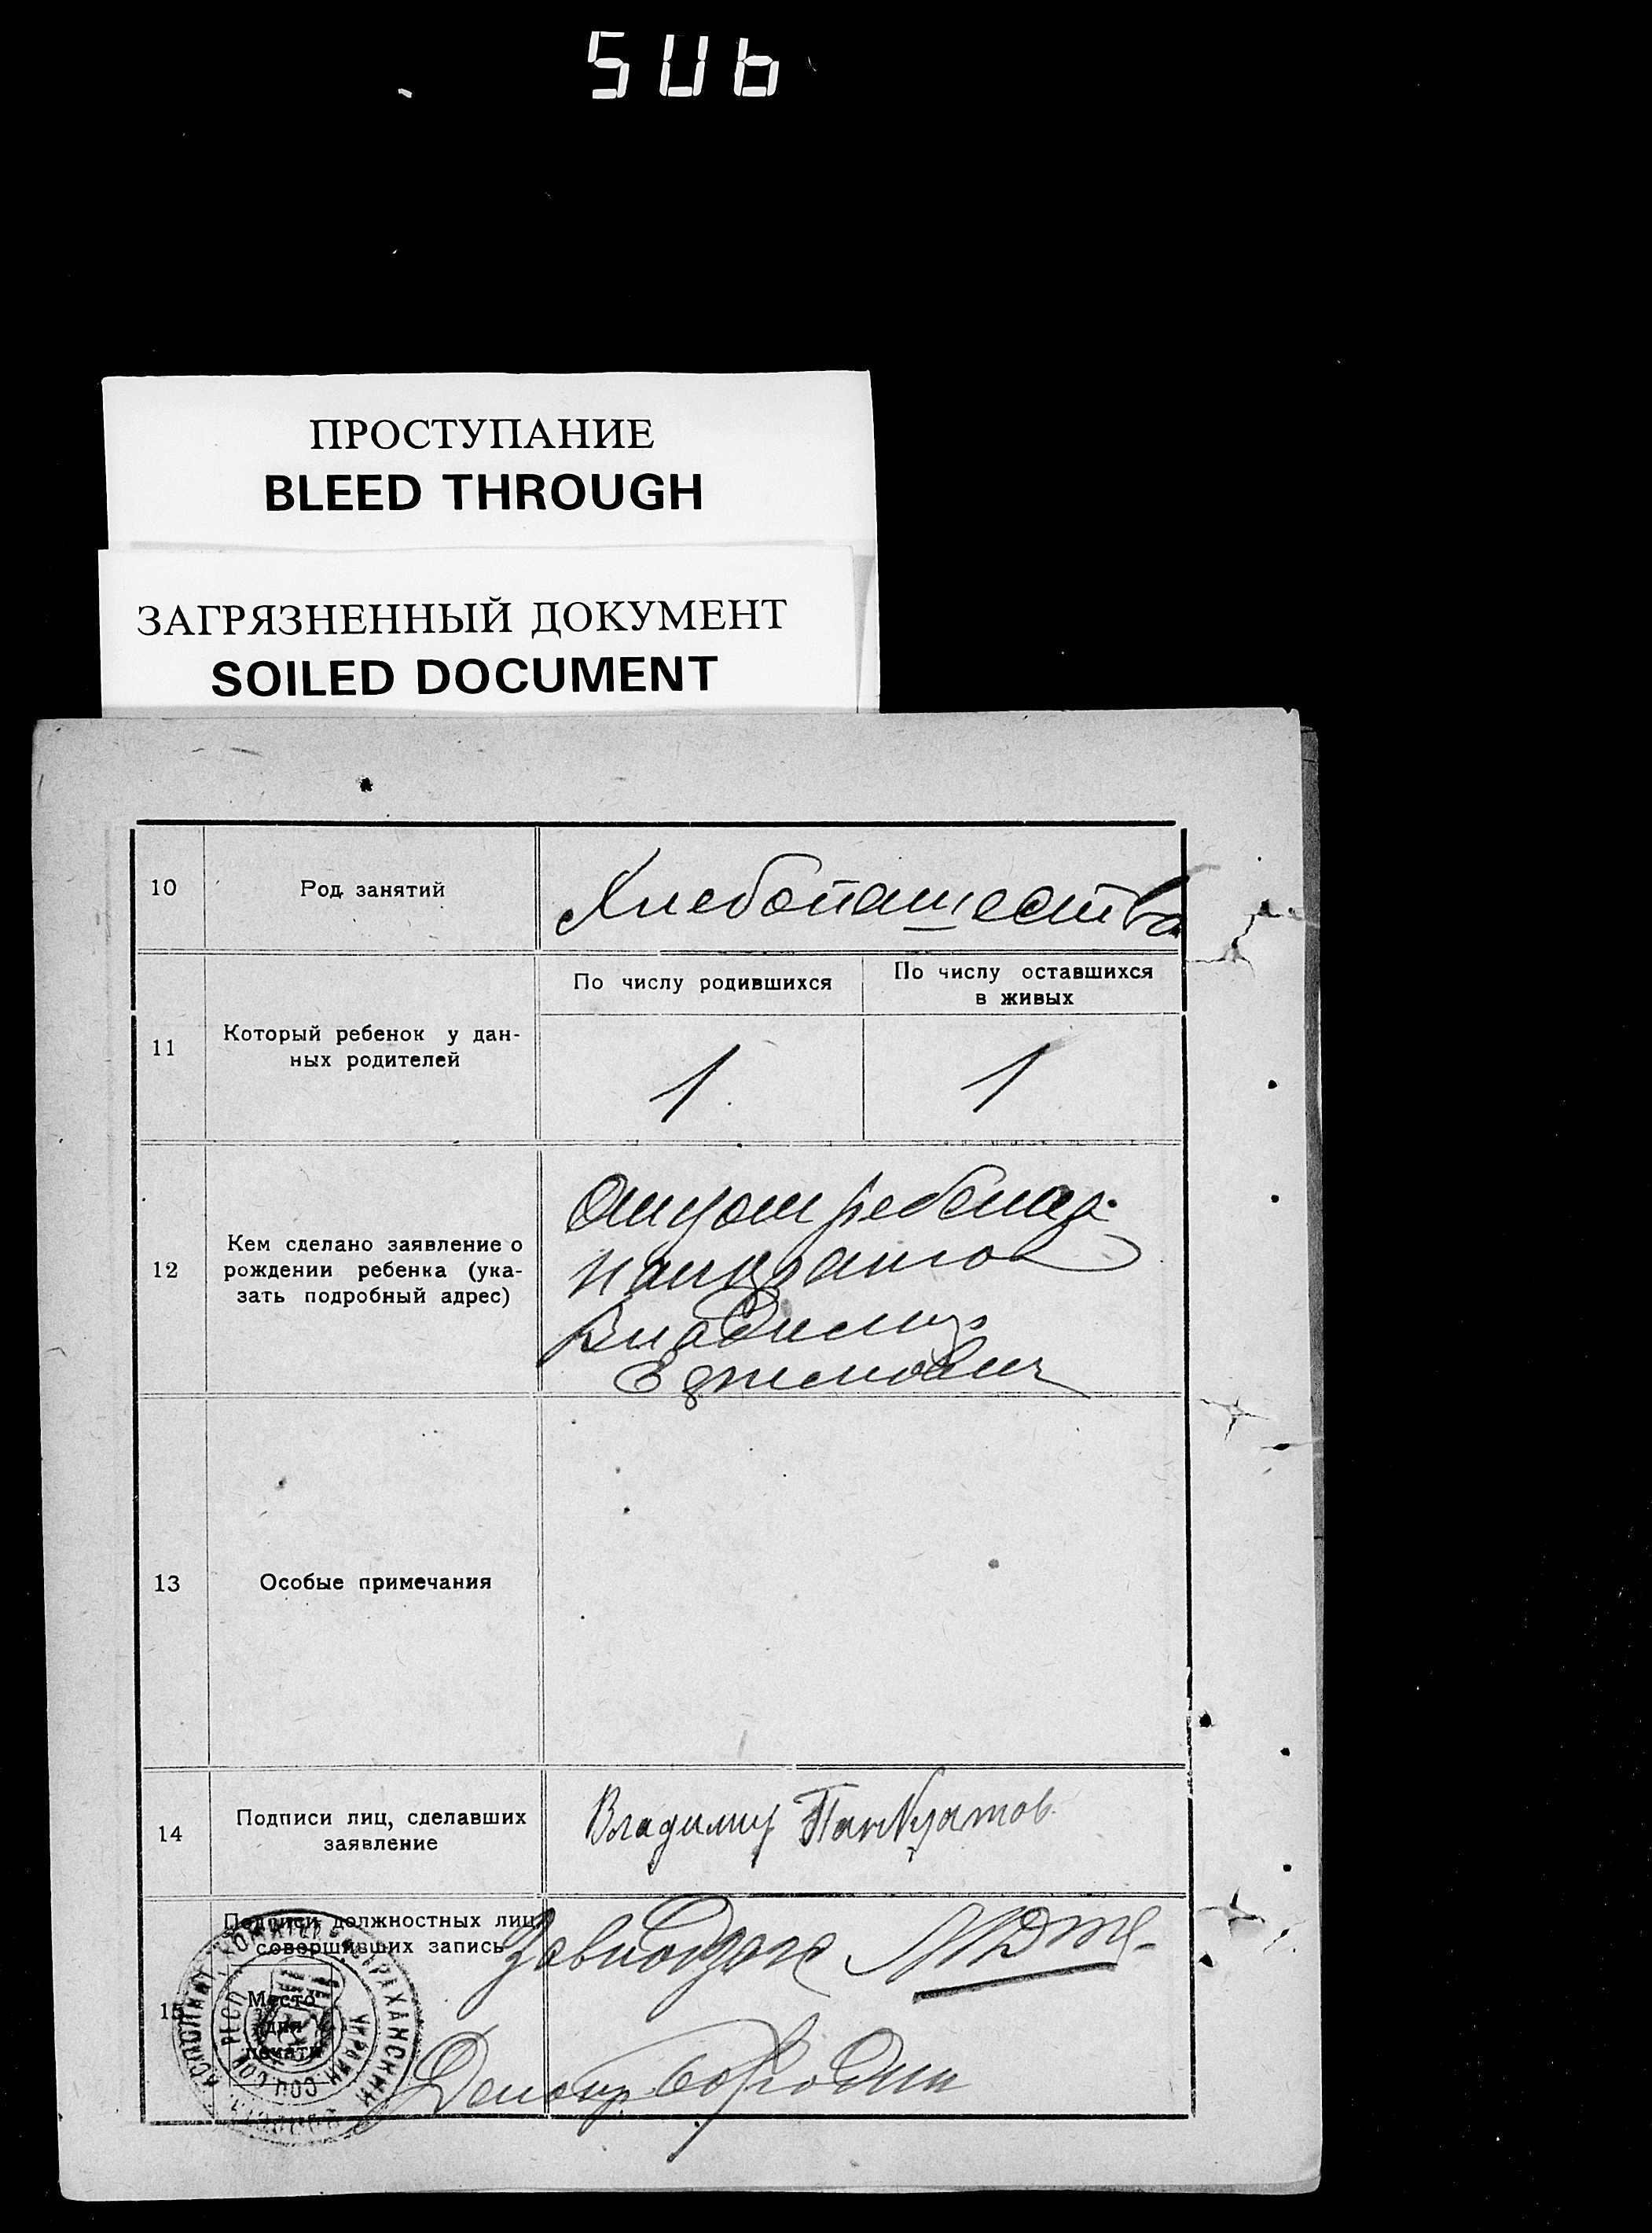 506
ПРОСТУПАНИЕ
BLEED THROUGH
ЗАГРЯЗНЕННЫЙ ДОКУМЕНТ
SOILED DOCUMENT
10
Род занятий
Хлебопашества
11
Который ребенок у дан-
ных родителей
По числу родившихся
По числу оставшихся
в живых
1
1
12
Кем сделано заявление о
рождении ребенка (ука-
зать подробный адрес)
Отцом ребенка
Панкратов
Владимир
Ефимович
13
Особые примечания
14
Подписи лиц, сделавших
заявление
Владимир Панкратов
15
Подписи должностных лиц,
совершивших запись
Место
для
печати
Делопр. Бородин